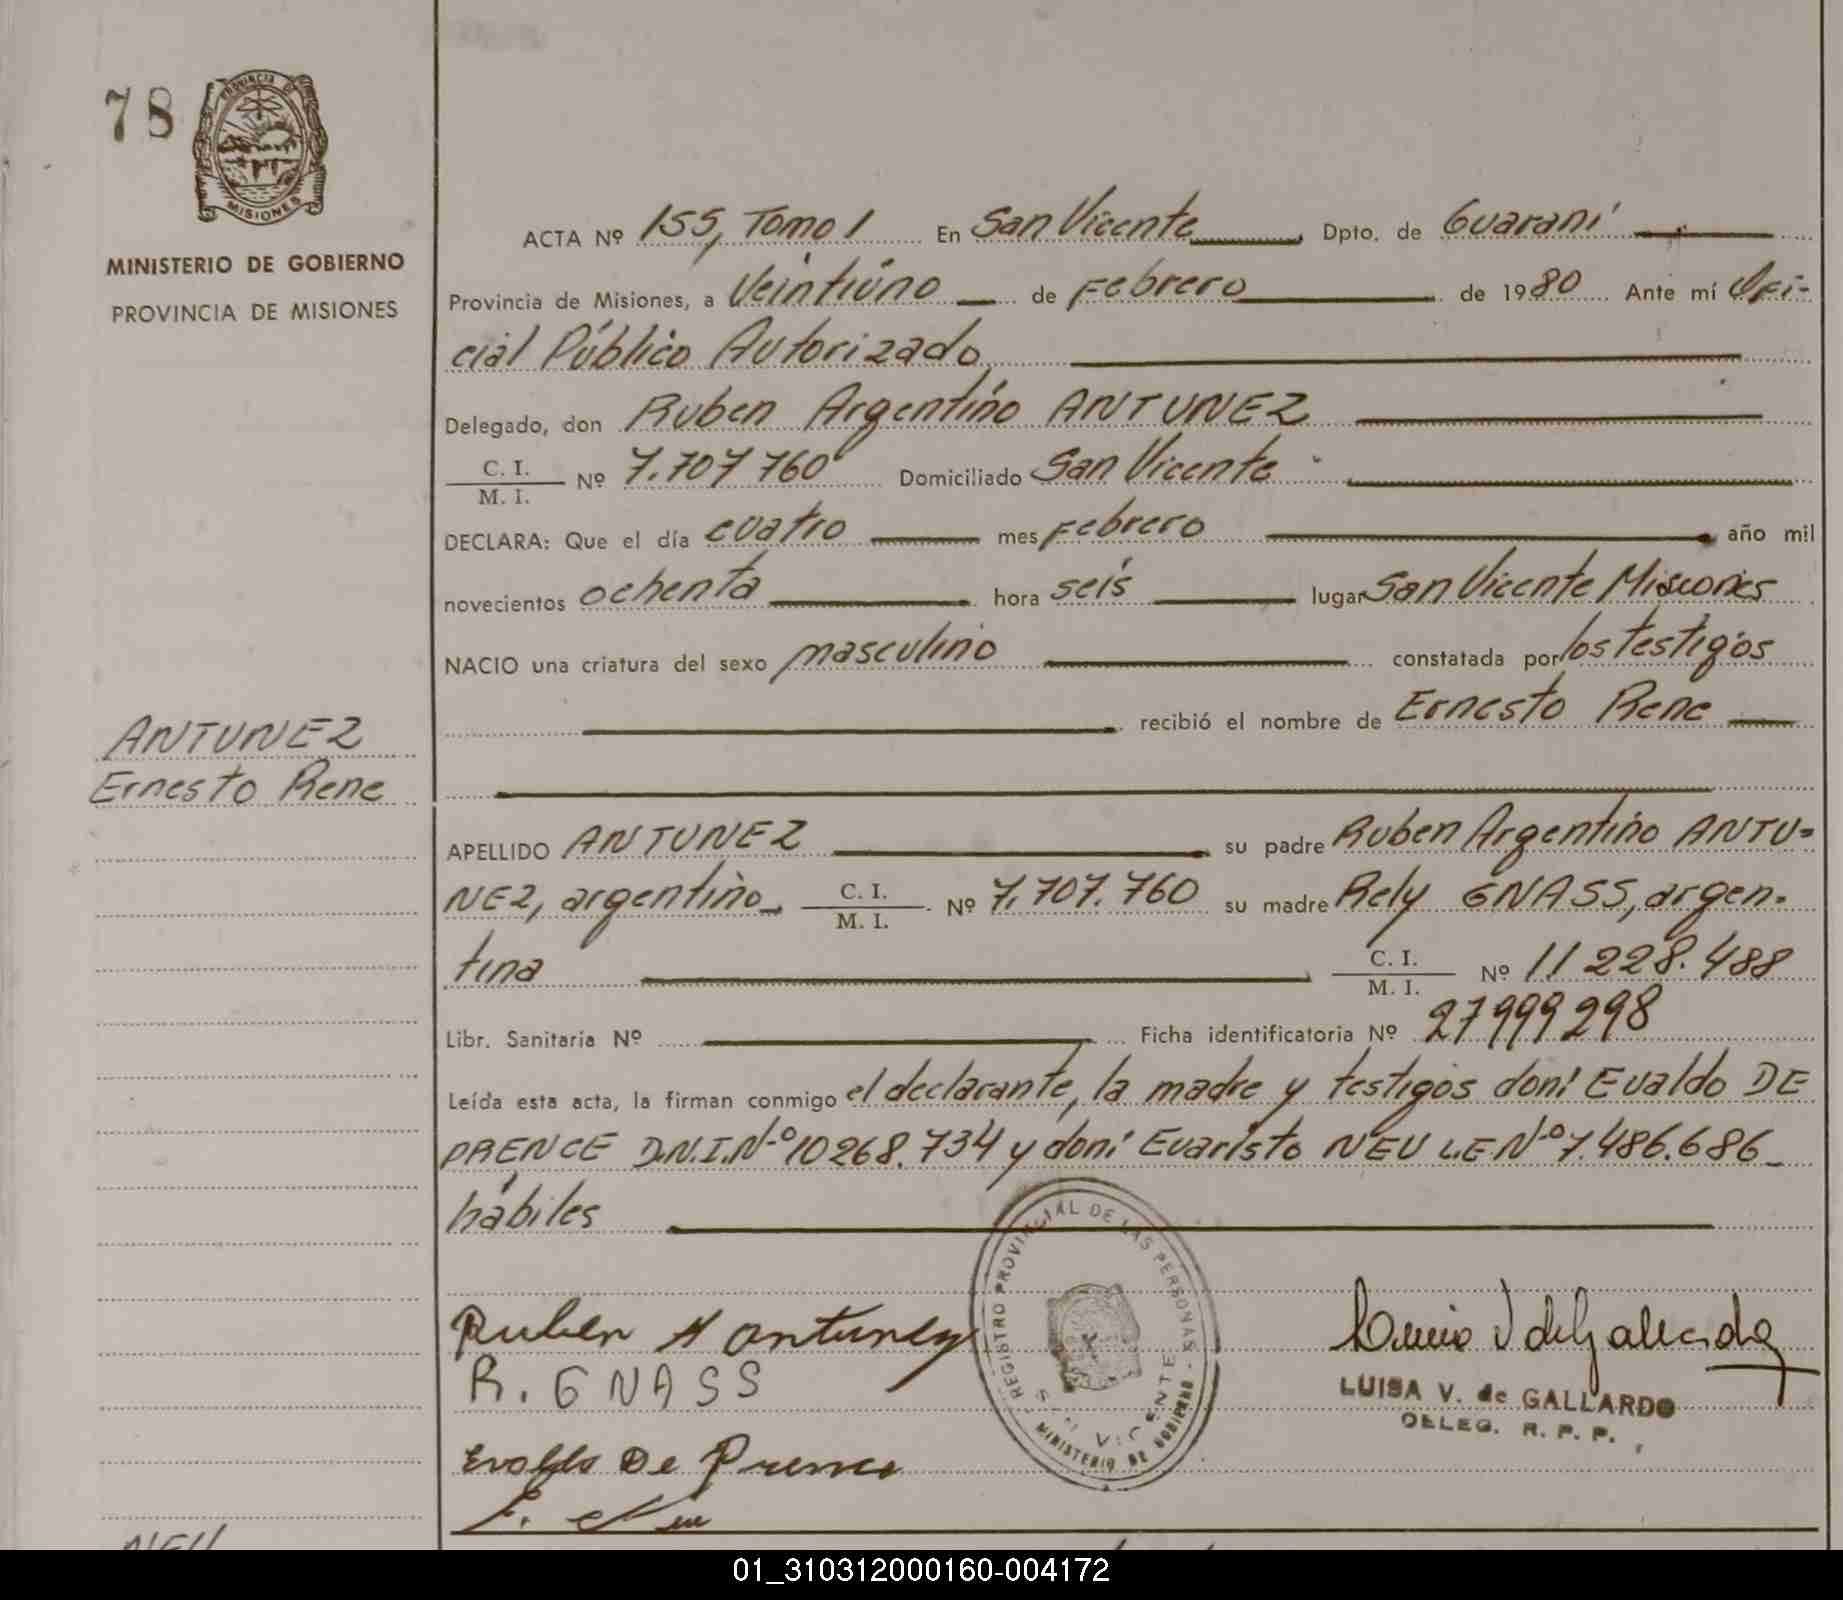 78
PROVINCIA DE
MISIONES
MINISTERIO DE GOBIERNO
PROVINCIA DE MISIONES
ACTA Nº 155, Tomo 1 En San Vicente Dpto. de Guaraní
Provincia de Misiones, a Veintiúno de Febrero de 1980 Ante mí Ofi-
cial Público Autorizado
Delegado, don Ruben Argentino ANTUNEZ
C. I.
M. I. Nº 7.707 760 Domiciliado San Vicente
DECLARA: Que el día cuatro mes Febrero año mil
novecientos ochenta hora seis lugar San Vicente Misiones
NACIO una criatura del sexo masculino constatada por los testigos
recibió el nombre de Ernesto Rene
ANTUNEZ
Ernesto Rene
APELLIDO ANTUNEZ su padre Ruben Argentino ANTU-
NEZ, argentino C. I. M. I. Nº 7.707.760 su madre Rely GNASS, argen-
tina C. I. M. I. Nº 11 228.488
Libr. Sanitaria Nº Ficha identificatoria Nº 27999298
Leída esta acta, la firman conmigo el declarante, la madre y testigos don: Evaldo DE
PRENCE D.N.I.Nº 10268.734 y don: Evaristo NEU L.E Nº 7.486.686
hábiles
REGISTRO PROVINCIAL DE LAS PERSONAS - MINISTERIO DE GOBIERNO
SAN VICENTE
Ruben A Antunez
R. GNASS
LUISA V. de GALLARDO
DELEG. R. P. P.
Evaldo De Prence
E. Neu
NEU
01_310312000160-004172